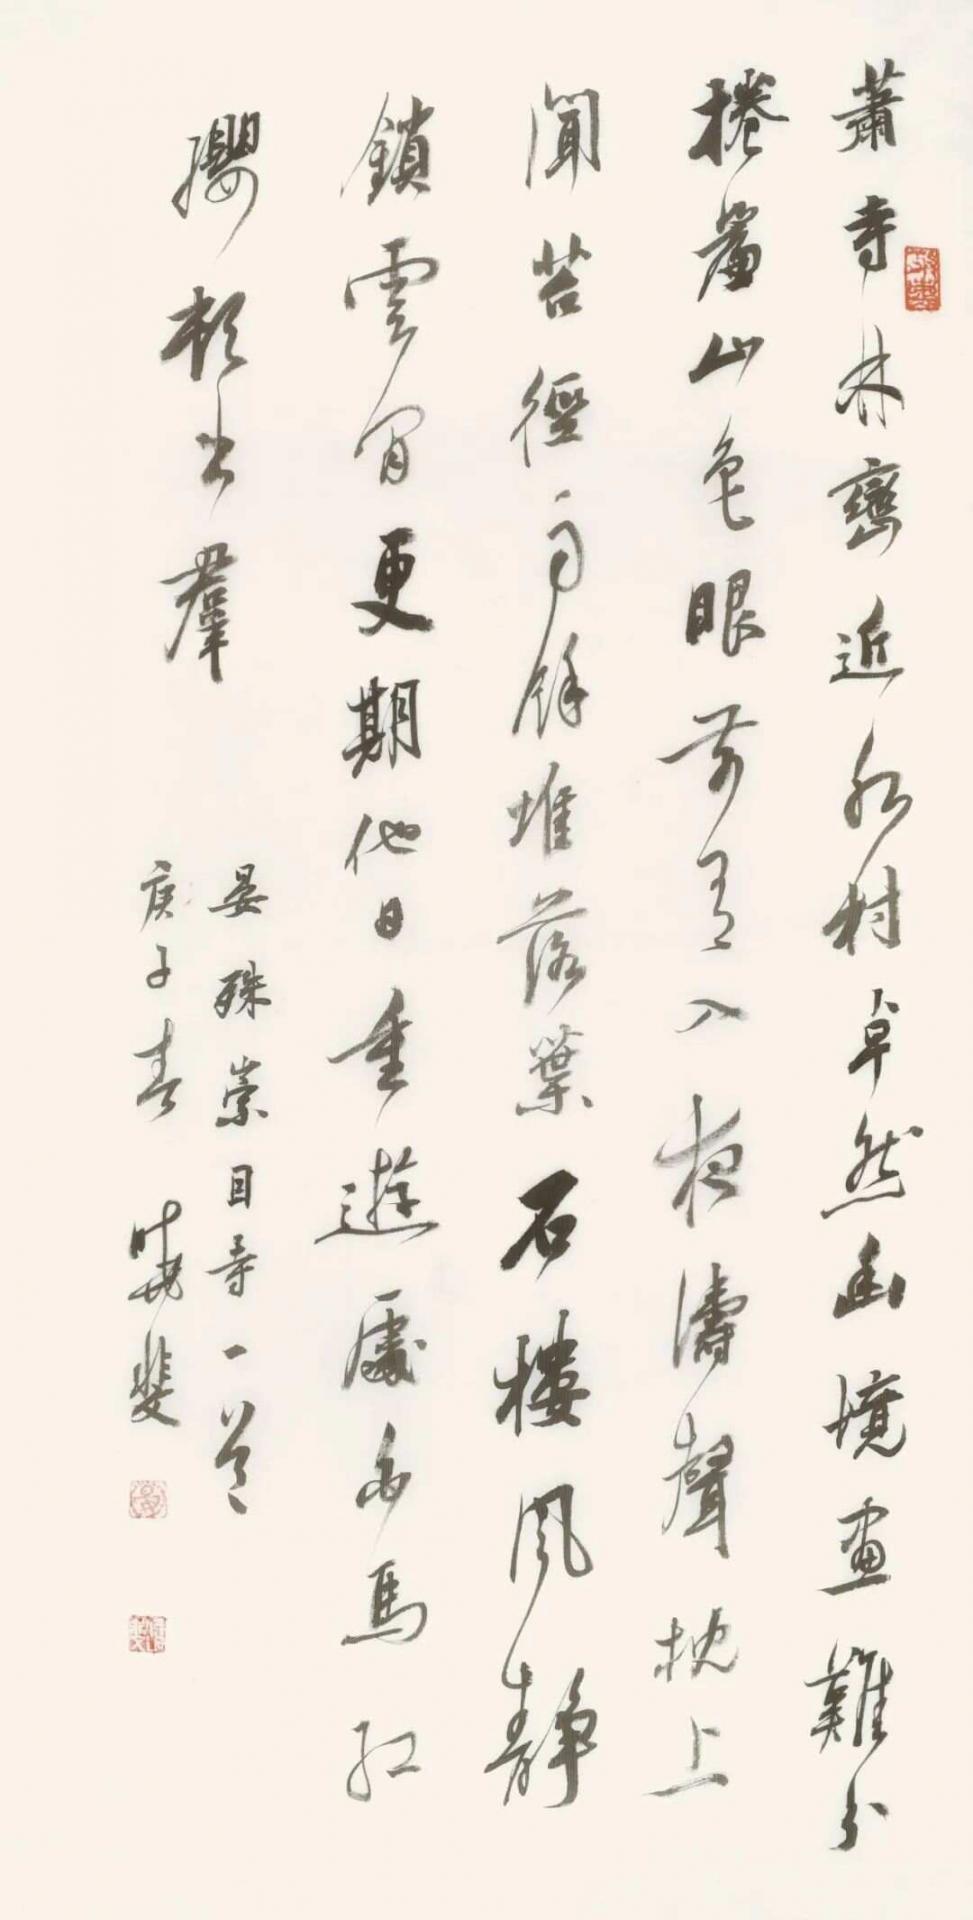 蕭寺林巒近水村卓然幽境畫難分
捲簾山色眼前入夜濤聲枕上
聞苔徑雨餘堆落葉石樓風靜
鎖雲閒更期他日重遊處白馬紅
纓出羣
晏殊崇目寺一首
庚子春 曉斐